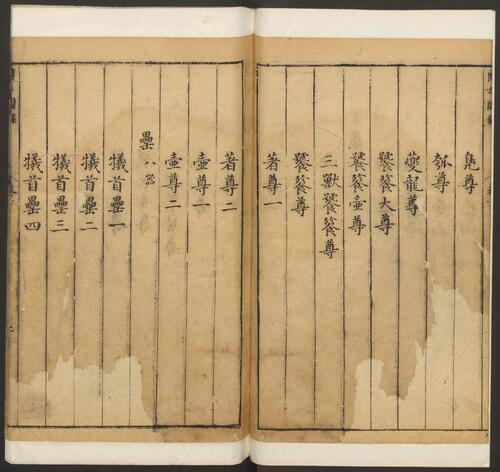 鳧尊
瓠尊
夔龍尊
饕餮大尊
饕餮壺尊
三獸饕餮尊
饕餮尊
著尊一
著尊二
壺尊一
壺尊二
罍八器
犧首罍一
犧首罍二
犧首罍三
犧首罍四